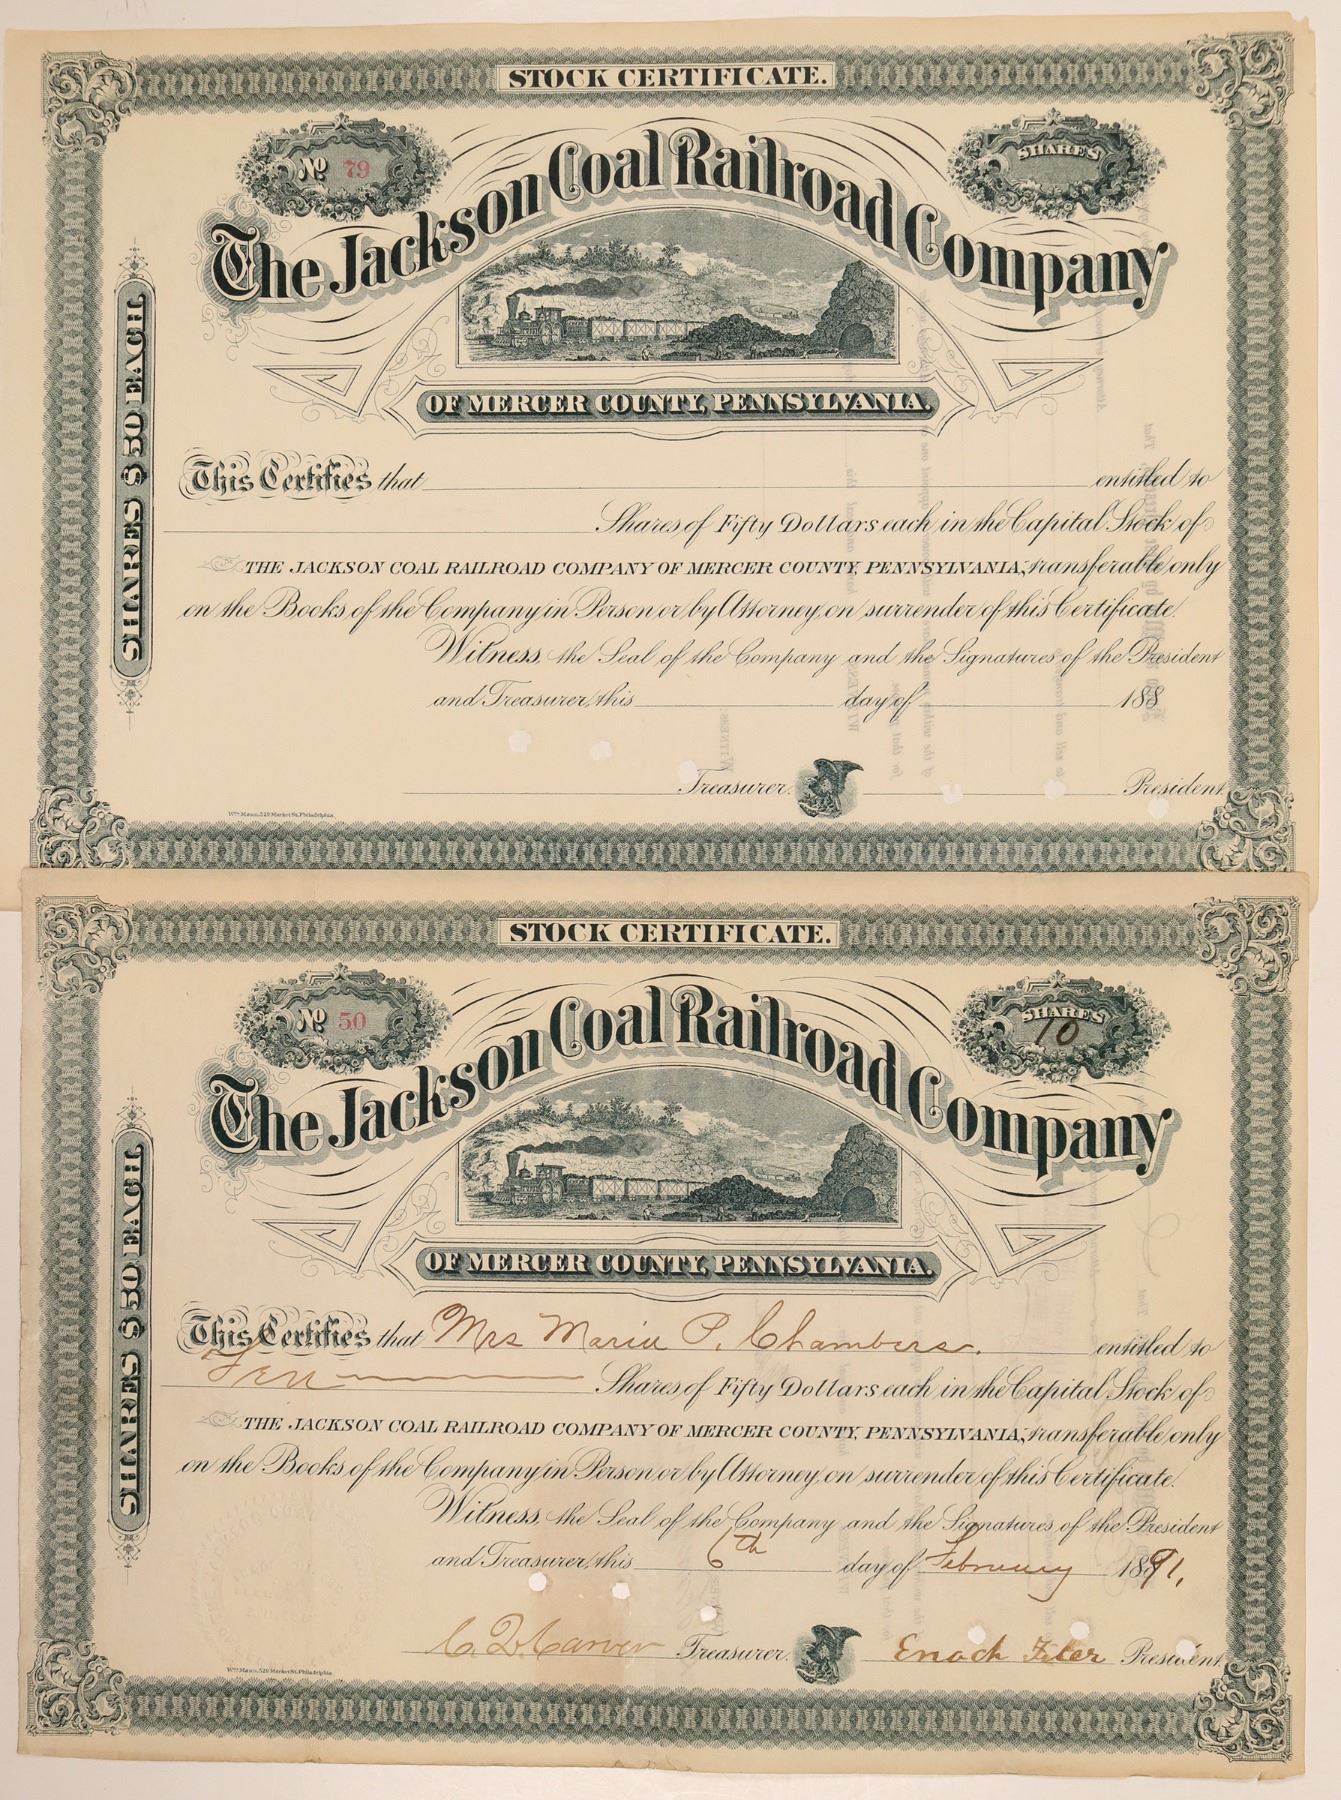 STOCK CERTIFICATE.
No 79
SHARES
The Jackson Coal Railroad Company
OF MERCER COUNTY, PENNSYLVANIA.
SHARES $50 EACH.
This Certifies that entitled to
Shares of Fifty Dollars each in the Capital Stock of
THE JACKSON COAL RAILROAD COMPANY OF MERCER COUNTY, PENNSYLVANIA, transferable only
on the Books of the Company in Person or by Attorney, on surrender of this Certificate.
Witness, the Seal of the Company and the Signatures of the President
and Treasurer, this day of 188
Treasurer. President.
Wm Mann, 529 Market St. Philadelphia.
STOCK CERTIFICATE.
No 50
SHARES
10
The Jackson Coal Railroad Company
OF MERCER COUNTY, PENNSYLVANIA.
SHARES $50 EACH.
This Certifies that Mrs Maria P. Chambers. entitled to
Ten Shares of Fifty Dollars each in the Capital Stock of
THE JACKSON COAL RAILROAD COMPANY OF MERCER COUNTY, PENNSYLVANIA, transferable only
on the Books of the Company in Person or by Attorney, on surrender of this Certificate.
Witness, the Seal of the Company and the Signatures of the President
and Treasurer, this 6th day of February 1891,
Carver Treasurer. Enoch Filer President.
Wm Mann, 529 Market St. Philadelphia.